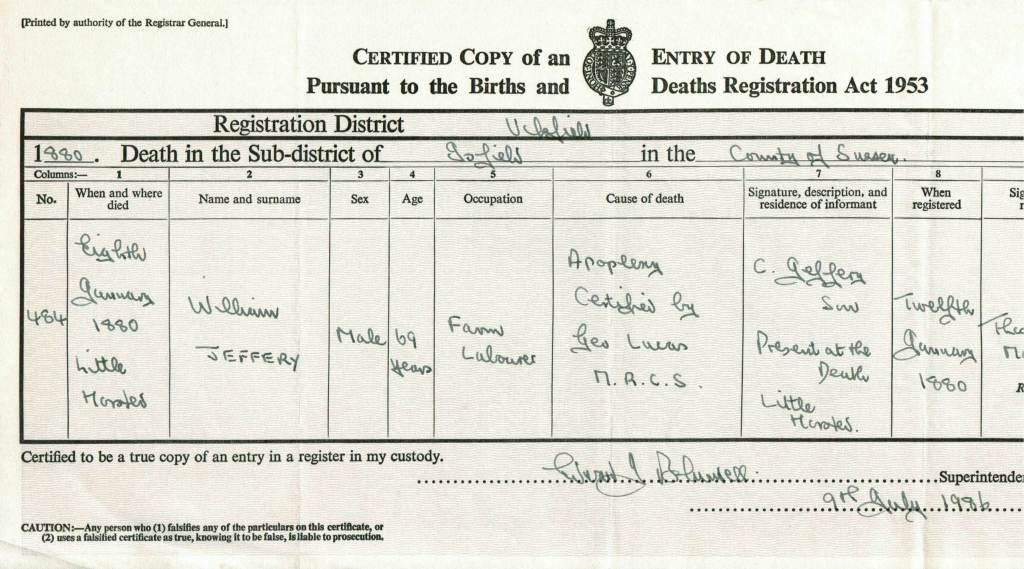 [Printed by authority of the Registrar General.]
CERTIFIED COPY of an ENTRY OF DEATH
Pursuant to the Births and Deaths Registration Act 1953
Registration District Uckfield
1880. Death in the Sub-district of Isfield in the County of Sussex.
Columns:— 1 2 3 4 5 6 7 8
No. When and where died Name and surname Sex Age Occupation Cause of death Signature, description, and residence of informant When registered
484
Eighth
January
1880
Little
Horsted
William
JEFFERY
Male
69
years
Farm
Labourer
Apoplexy
Certified by
Geo Lucas
M.R.C.S.
C. Jeffery
Son
Present at the
Death
Little
Horsted.
Twelfth
January
1880
Certified to be a true copy of an entry in a register in my custody.
9th July 1986
CAUTION:—Any person who (1) falsifies any of the particulars on this certificate, or
(2) uses a falsified certificate as true, knowing it to be false, is liable to prosecution.